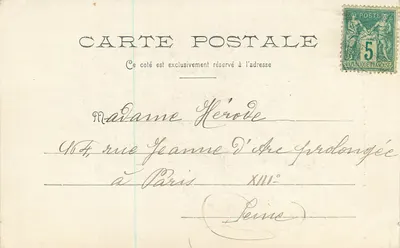 CARTE POSTALE
Ce côté est exclusivement réservé à l'adresse
POSTE
5
Madame Hérode
164, rue Jeanne d'Arc prolongée
à Paris XIIIe
(Seine)